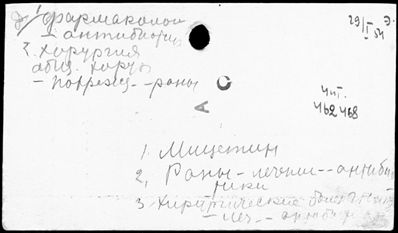 фармакологи
— антибиотик
2. Хирургия
общ. хирур
— поврежд. — раны
29/I 54
Э.
А С
Чит.
462468
1. Мицетин
2. Раны — лечение — антиби
отики
3 Хирургические
— леч. — антиби